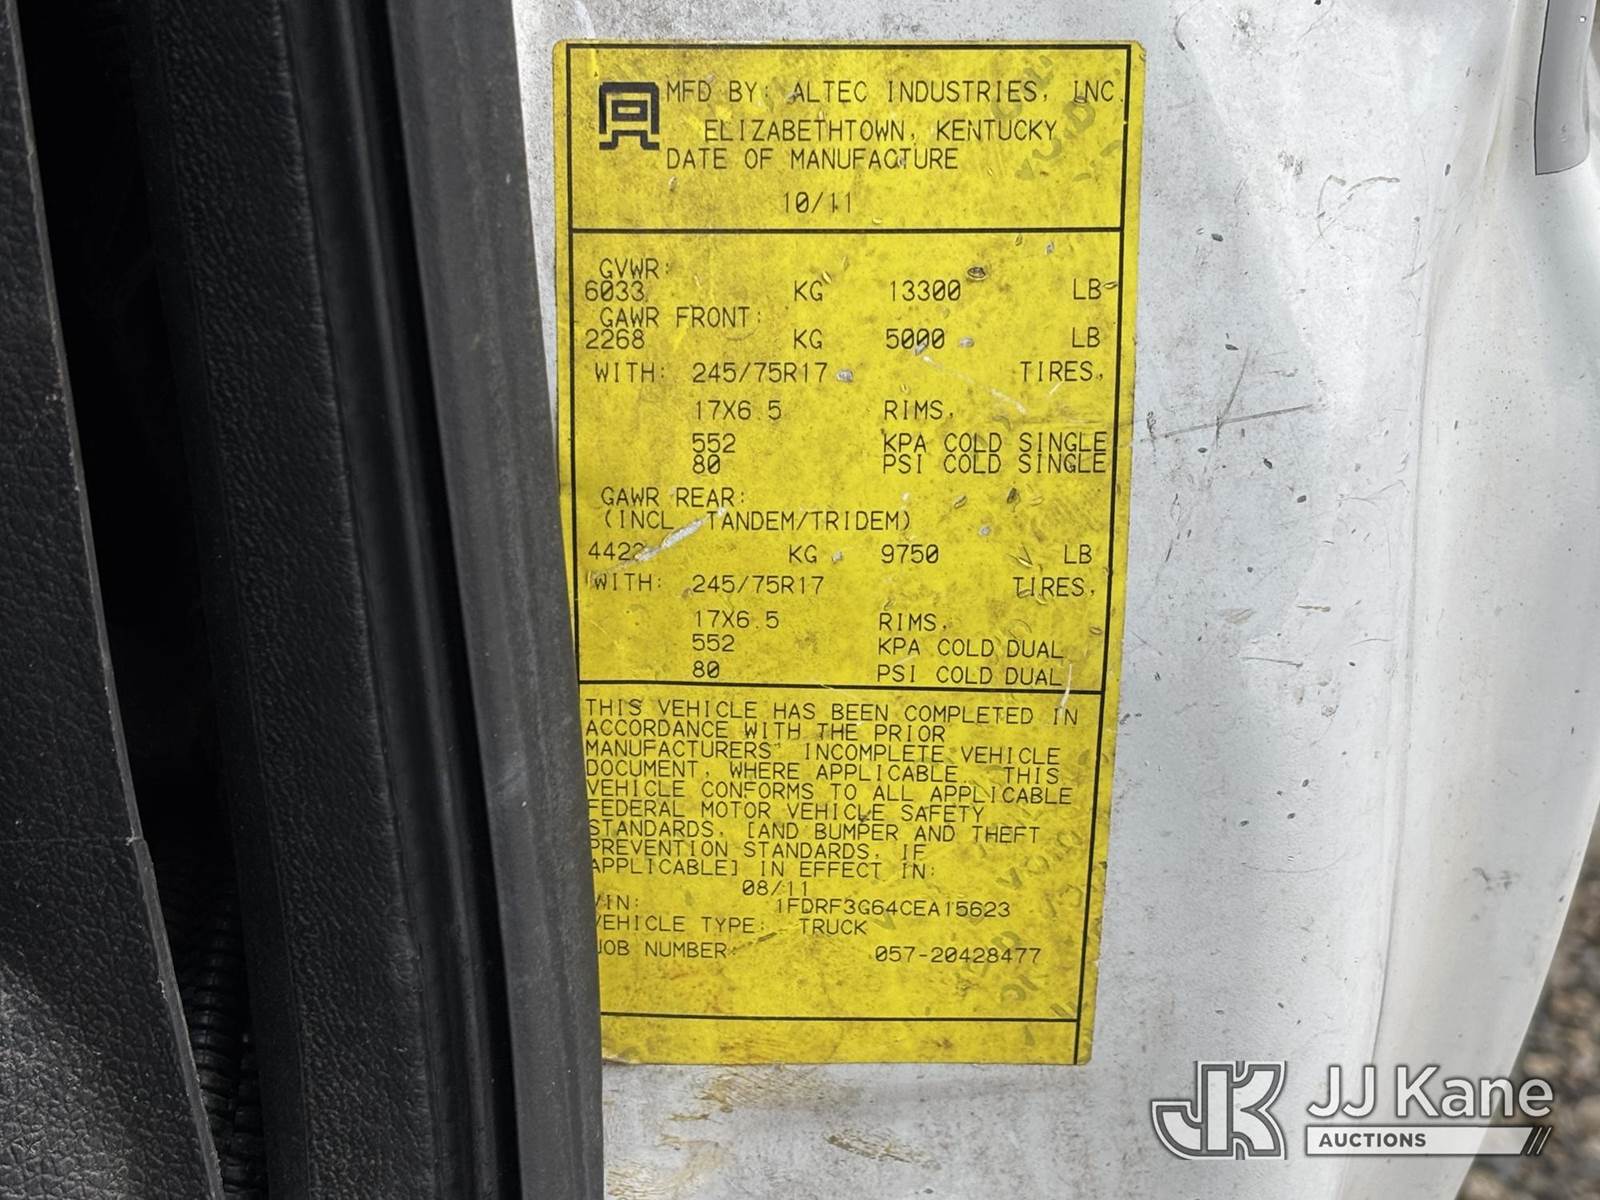 MFD BY: ALTEC INDUSTRIES, INC.
ELIZABETHTOWN, KENTUCKY
DATE OF MANUFACTURE
10/11
GVWR:
6033 KG 13300 LB
GAWR FRONT:
2268 KG 5000 LB
WITH: 245/75R17 TIRES,
17X6.5 RIMS,
552 KPA COLD SINGLE
80 PSI COLD SINGLE
GAWR REAR:
(INCL. TANDEM/TRIDEM)
4422 KG 9750 LB
WITH: 245/75R17 TIRES,
17X6.5 RIMS,
552 KPA COLD DUAL
80 PSI COLD DUAL
THIS VEHICLE HAS BEEN COMPLETED IN
ACCORDANCE WITH THE PRIOR
MANUFACTURERS' INCOMPLETE VEHICLE
DOCUMENT, WHERE APPLICABLE. THIS
VEHICLE CONFORMS TO ALL APPLICABLE
FEDERAL MOTOR VEHICLE SAFETY
STANDARDS, [AND BUMPER AND THEFT
PREVENTION STANDARDS, IF
APPLICABLE] IN EFFECT IN:
08/11
VIN: 1FDRF3G64CEA15623
VEHICLE TYPE: TRUCK
JOB NUMBER: 057-20428477
JK JJ Kane
AUCTIONS